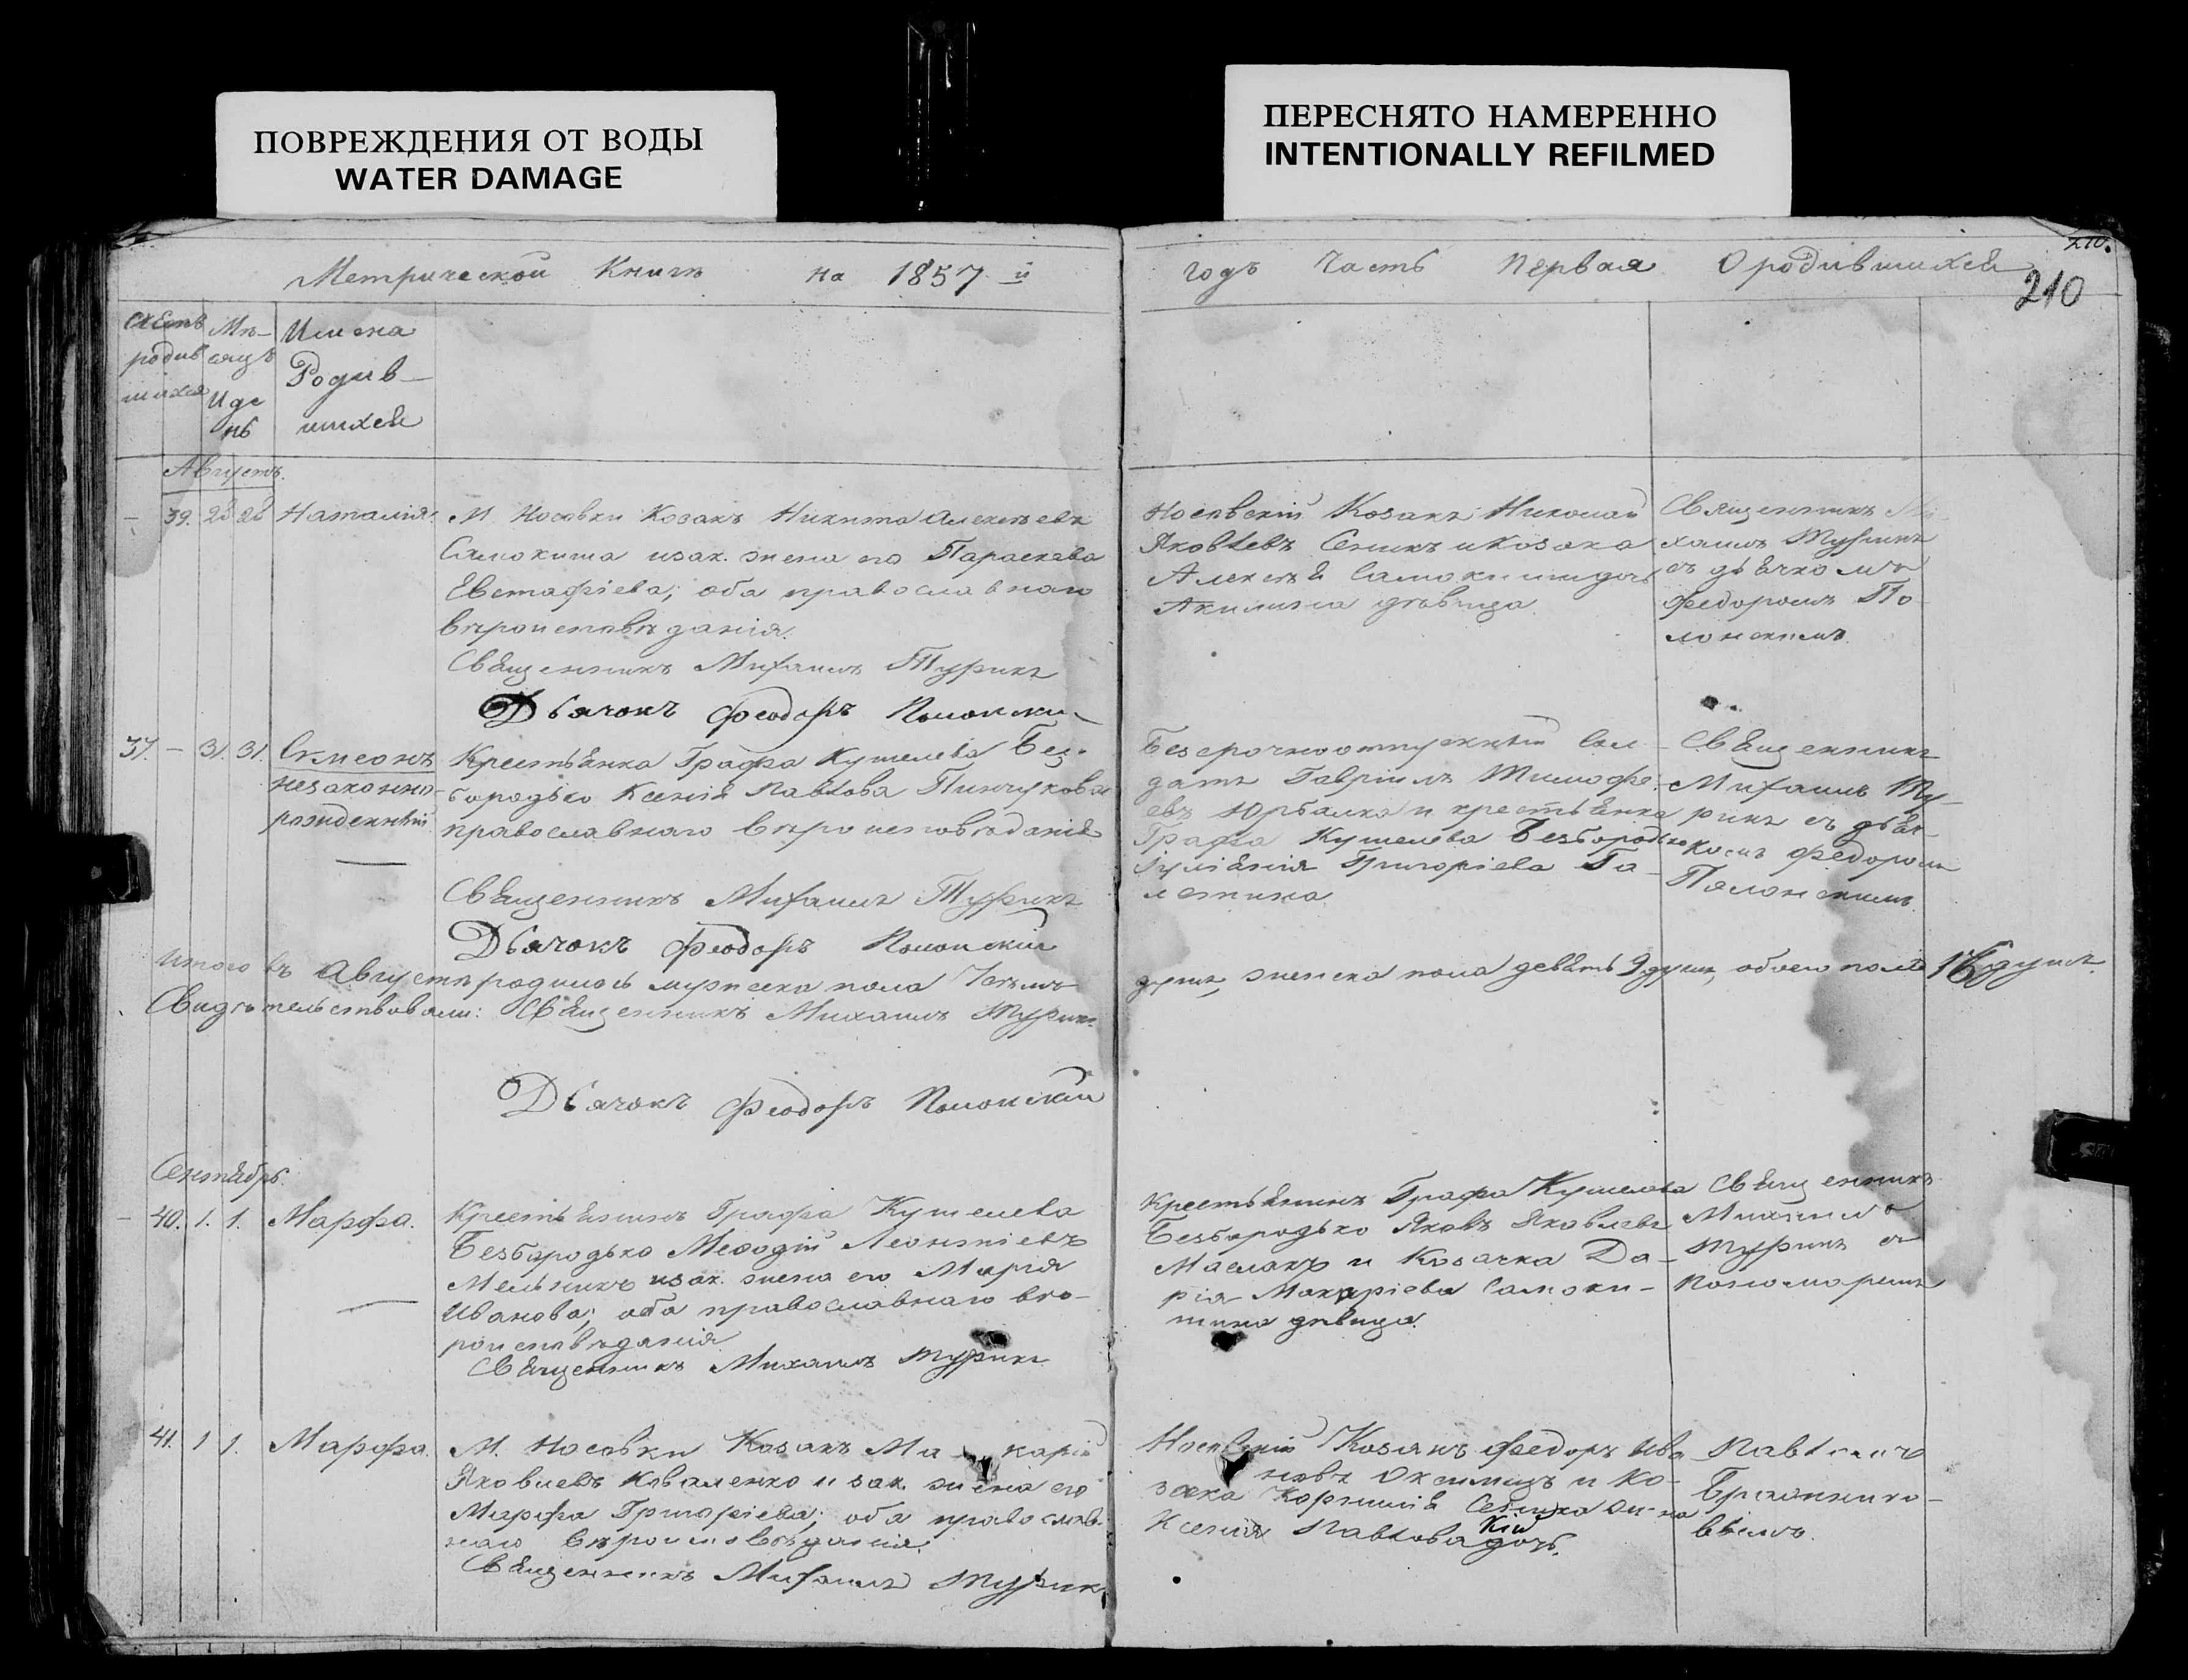 ПОВРЕЖДЕНИЯ ОТ ВОДЫ
WATER DAMAGE
ПЕРЕСНЯТО НАМЕРЕННО
INTENTIONALLY REFILMED
Метрической Книги на 1857 й
годъ Часть Первая О родившихся
210.
210
Счетъ родив шихся
Мѣ- сяцъ И де нь
Имена Родив- шихся
Августъ.
39. 26 26 Наталія.
М. Носовки Козакъ Никита Алексѣевъ
Самокиша и зак. жена его Параскева
Евстафіева; оба православнаго
вѣроисповѣданія.
Священникъ Михаилъ Турикъ
Дьячокъ Феодоръ Полонскій
Носовскій Козакъ Николай
Яковлевъ Сеникъ и козака
Алексѣя Самокиши дочь
Акилина дѣвица.
Священникъ Ми-
хаилъ Турикъ
съ дьячкомъ
Федоромъ По-
лонскимъ.
37. - 31. 31. Симеонъ
незаконно-
рожденный
Крестьянка Графа Кушелева Без-
бородько Ксенія Павлова Пинчукова
православнаго вѣроисповѣданія
Священникъ Михаилъ Турикъ
Дьячокъ Феодоръ Полонскій
Безсрочноотпускный Сол-
датъ Гавріилъ Тимофе-
евъ Юрбалка и крестьянка
Графа Кушелева Безбородько
Іуліянія Григоріева Га-
Священникъ
Михаилъ Ту-
рикъ съ дьяч-
комъ Федоромъ
Полонскимъ.
Итого въ Августѣ родилось мужеска пола
душъ, женска пола девять 9 душъ, обоего пола 16 душъ.
Свидѣтельствовали: Священникъ Михаилъ Турикъ
Дьячокъ Феодоръ Полонскій
Сентябрь.
- 40. 1. 1. Марфа.
Крестьянинъ Графа Кушелева
Безбородько Меѳодій Леонтіевъ
Мельникъ и зак. жена его Марія
Иванова; оба православнаго вѣ-
роисповѣданія
Священникъ Михаилъ Турикъ
Крестьянинъ Графа Кушелева
Безбородько Яковъ Яковлевъ
Маслакъ и Козачка Да-
рія Макаріева Самоки-
шина дѣвица.
Священникъ
Михаилъ
Турикъ съ
пономаремъ
41. 1 1. Марфа.
М. Носовки Козакъ Ма карій
Яковлевъ Коваленко и зак. жена его
Марфа Григоріева; оба православ-
наго вѣроисповѣданія.
Священникъ Михаилъ Турикъ
Носовскій Козакъ Федоръ Ива
новъ и Ко-
зака Корнилія
Ксенія Павлова дочь.
Павломъ